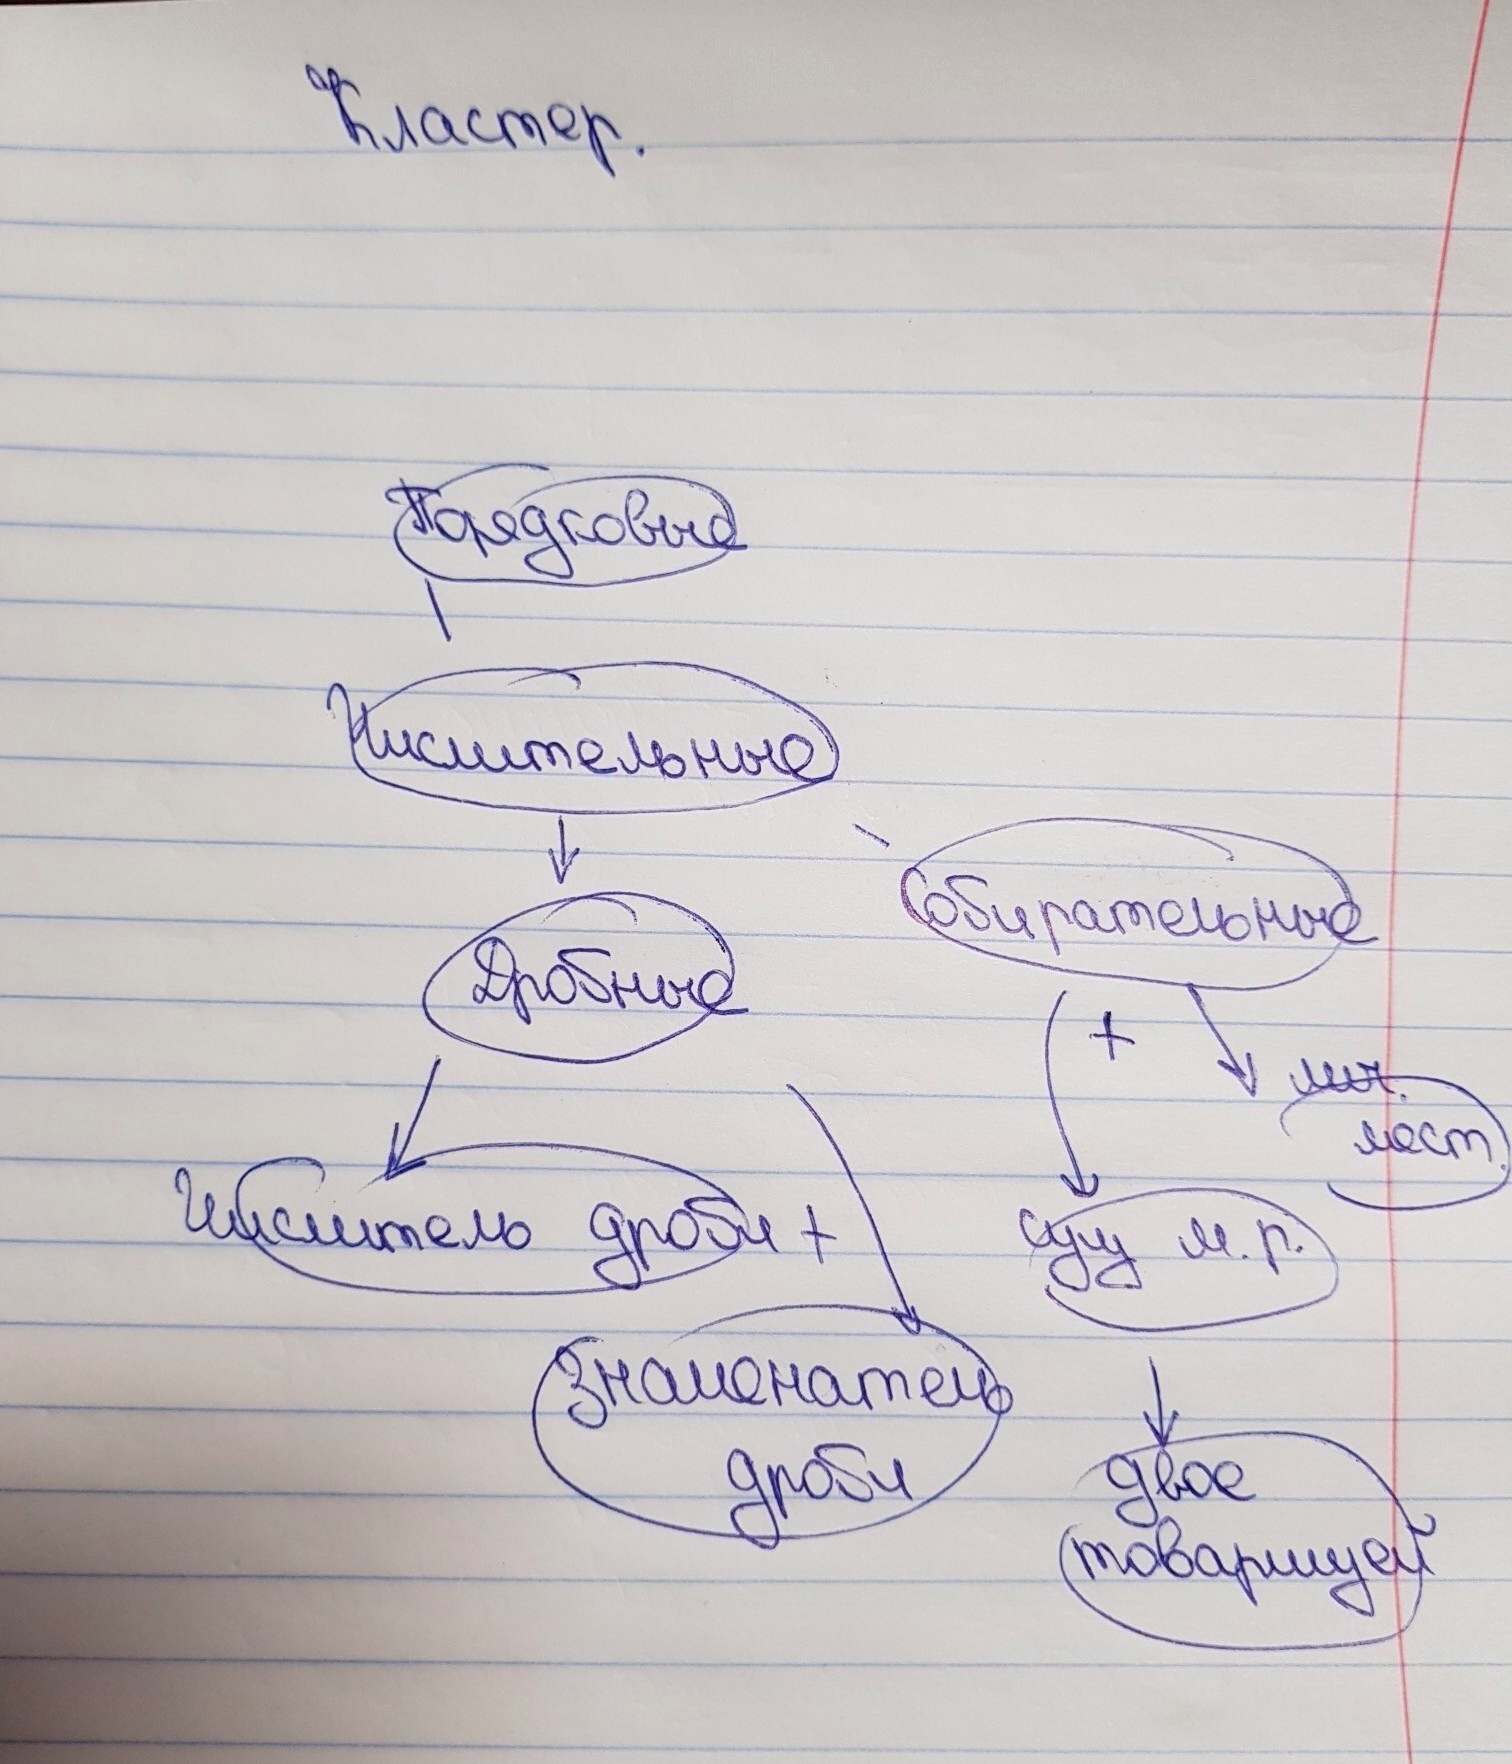 Кластер.
Порядковые
Числительные
Собирательные
Дробные
+
лич.
мест.
Числитель дроби +
сущ м.р.
Знаменатель
дроби
двое
товарищей